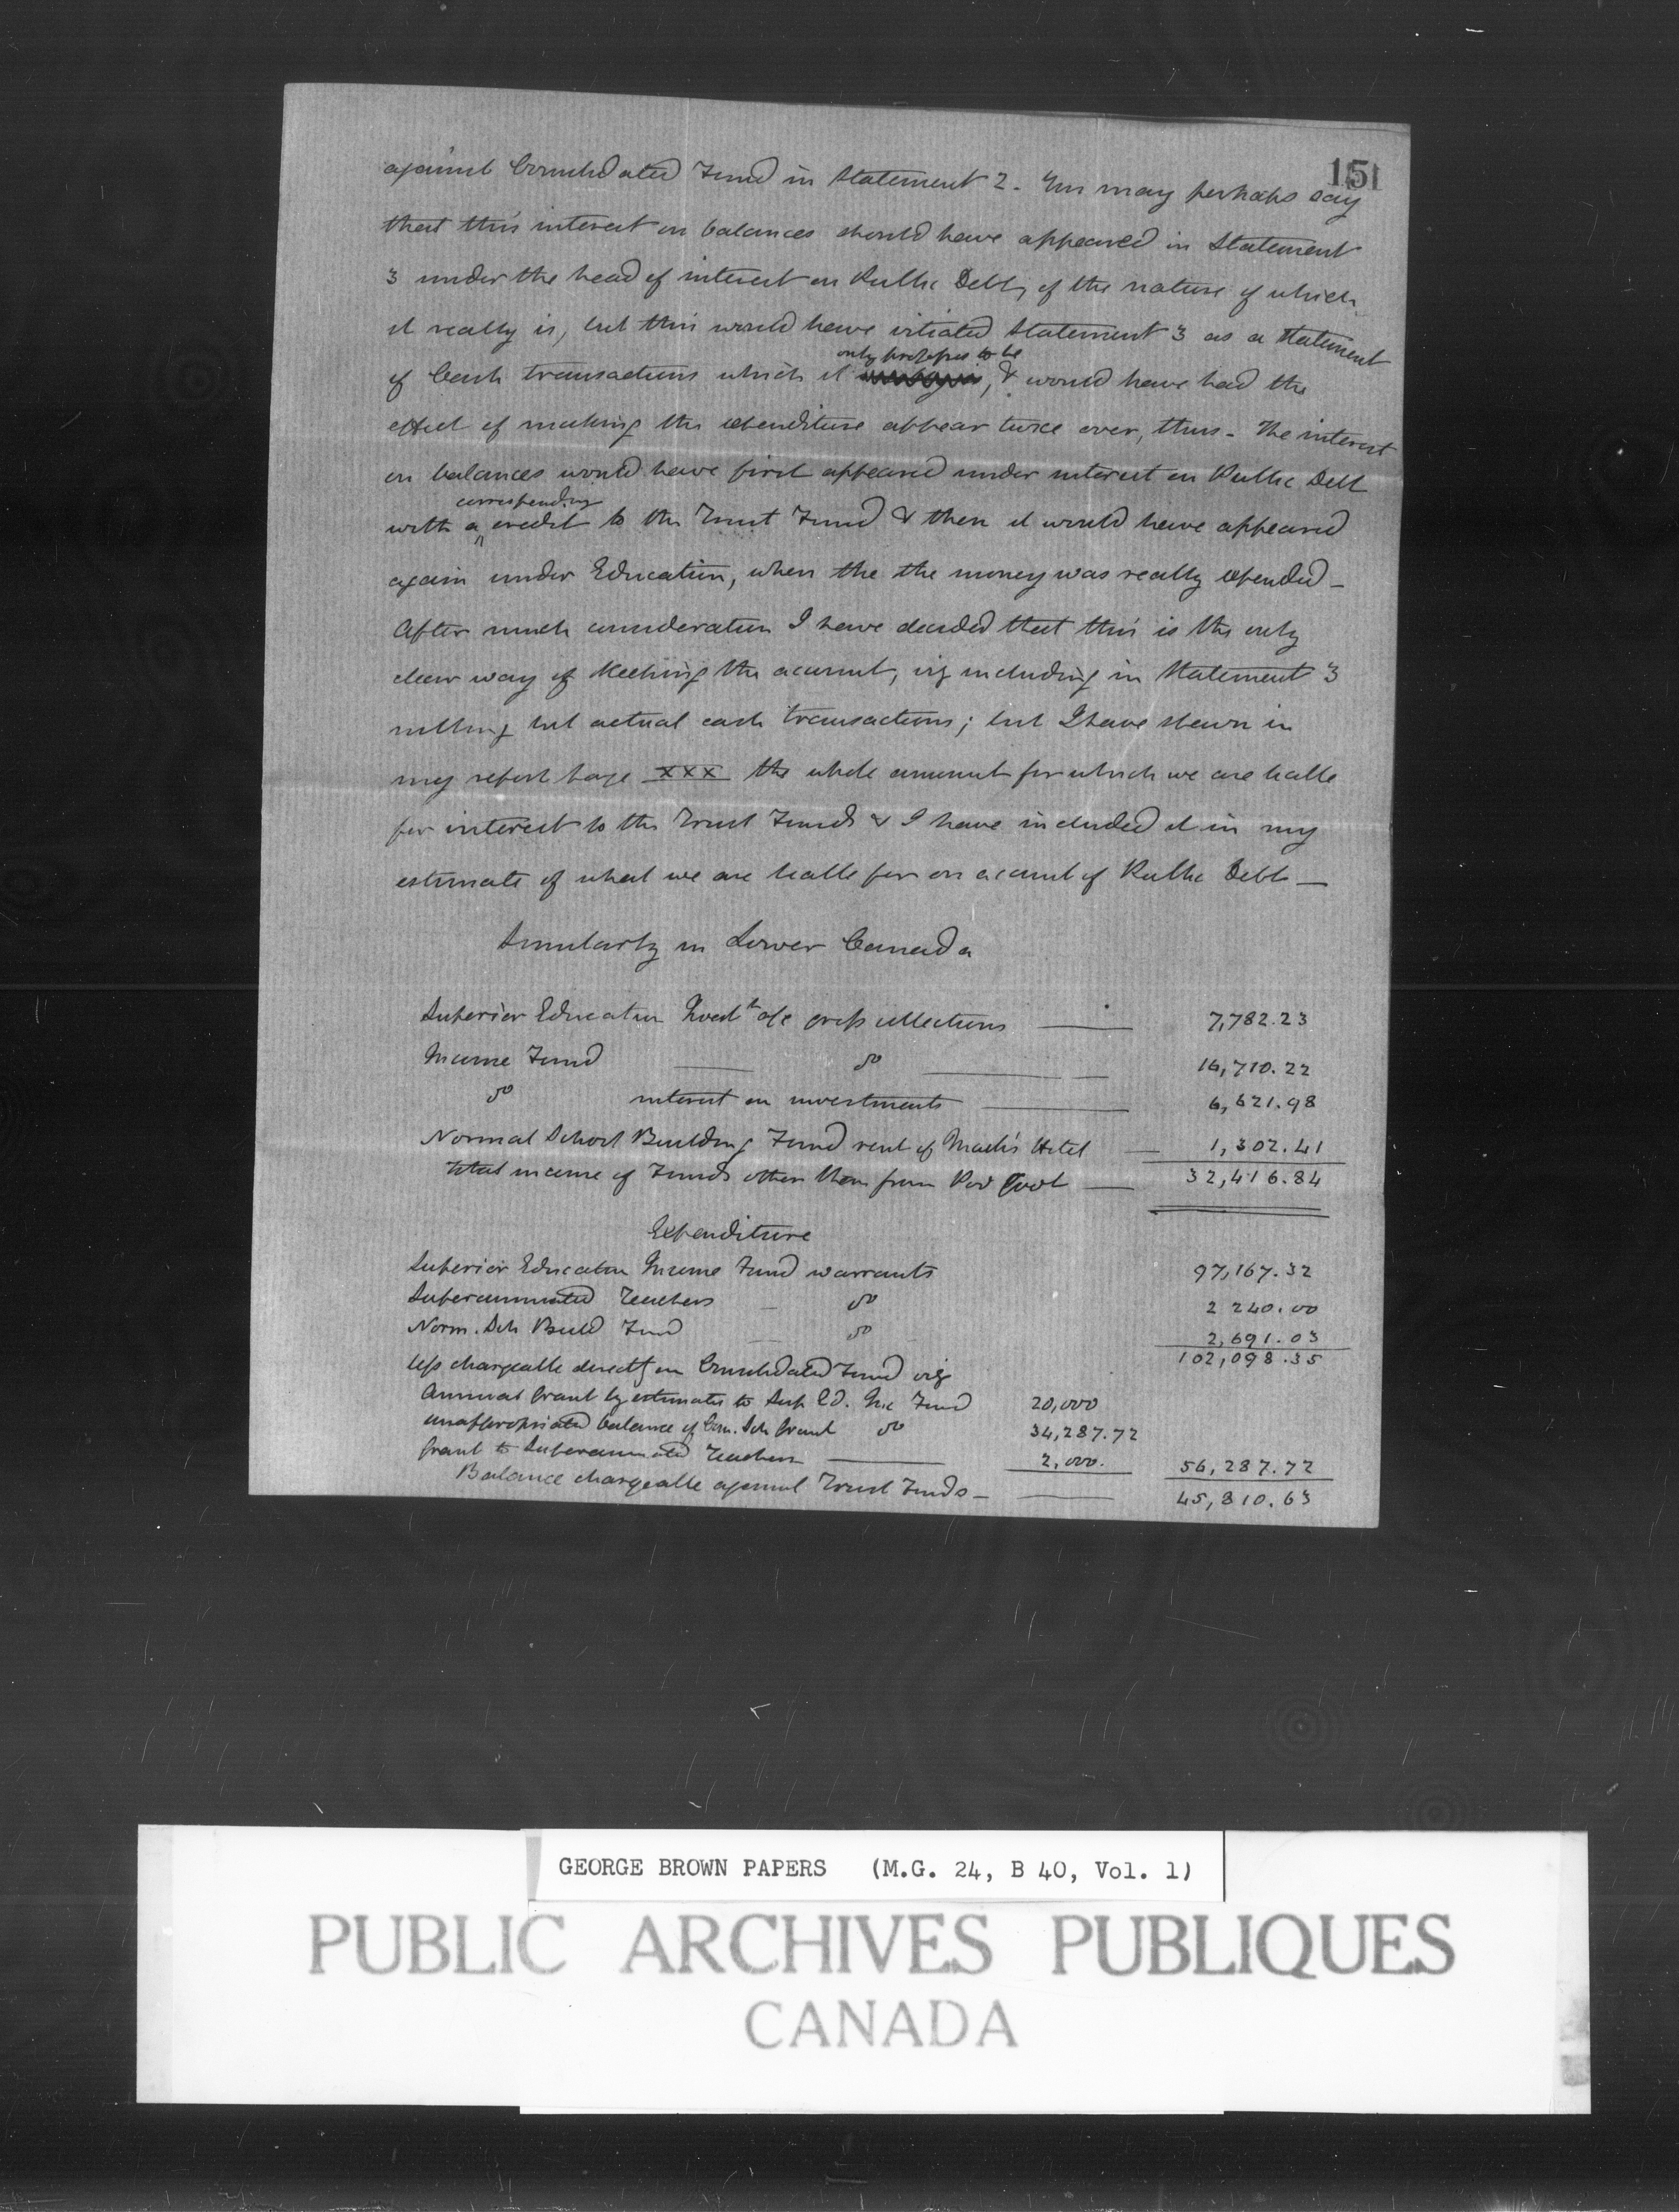 151
against Consolidated Fund in Statement 2. You may perhaps say
that this interest on balances should have appeared in Statement
3 under the head of interest on Public Debt, of the nature of which
it really is, but this would have vitiated Statement 3 as a Statement
only professes to be
of Cash transactions which it , & would have had the
effect of making the expenditure appear twice over, thus - The interest
on balances would have first appeared under interest on Public Debt
corresponding
with a credit to the Trust Fund & then it would have appeared
again under Education, when the the money was really expended -
After much consideration I have decided that this is the only
clear way of keeping the account, viz including in Statement 3
nothing but actual cash transactions; but I have shewn in
my report page xxx the whole amount for which we are liable
for interest to the Trust Funds & I have included it in my
estimate of what we are liable for on account of Public Debt -
Similarly in Lower Canada
Superior Education Invest a/c gross collections 7,782.23
Income Fund do 16,710.22
do interest on investments 6,621.98
Normal School Building Fund rent of Mack's Hotel 1,302.41
Total income of Funds other than from Govt 32,416.84
Expenditure
Superior Education Income Fund warrants 97,167.32
Superannuated Teachers - do 2 240.00
Norm. Sch Build Fund do 2,691.03
102,098.35
less chargeable directly on Consolidated Fund viz
Annual Grant by estimates to Sup Ed. Inc Fund 20,000
unappropriated balance of Com. Sch Grant do 34,287.72
Grant to Superannuated Teachers 2,000. 56,287.72
Balance chargeable against Trust Funds - 45,810.63
GEORGE BROWN PAPERS (M.G. 24, B 40, Vol. 1)
PUBLIC ARCHIVES PUBLIQUES
CANADA